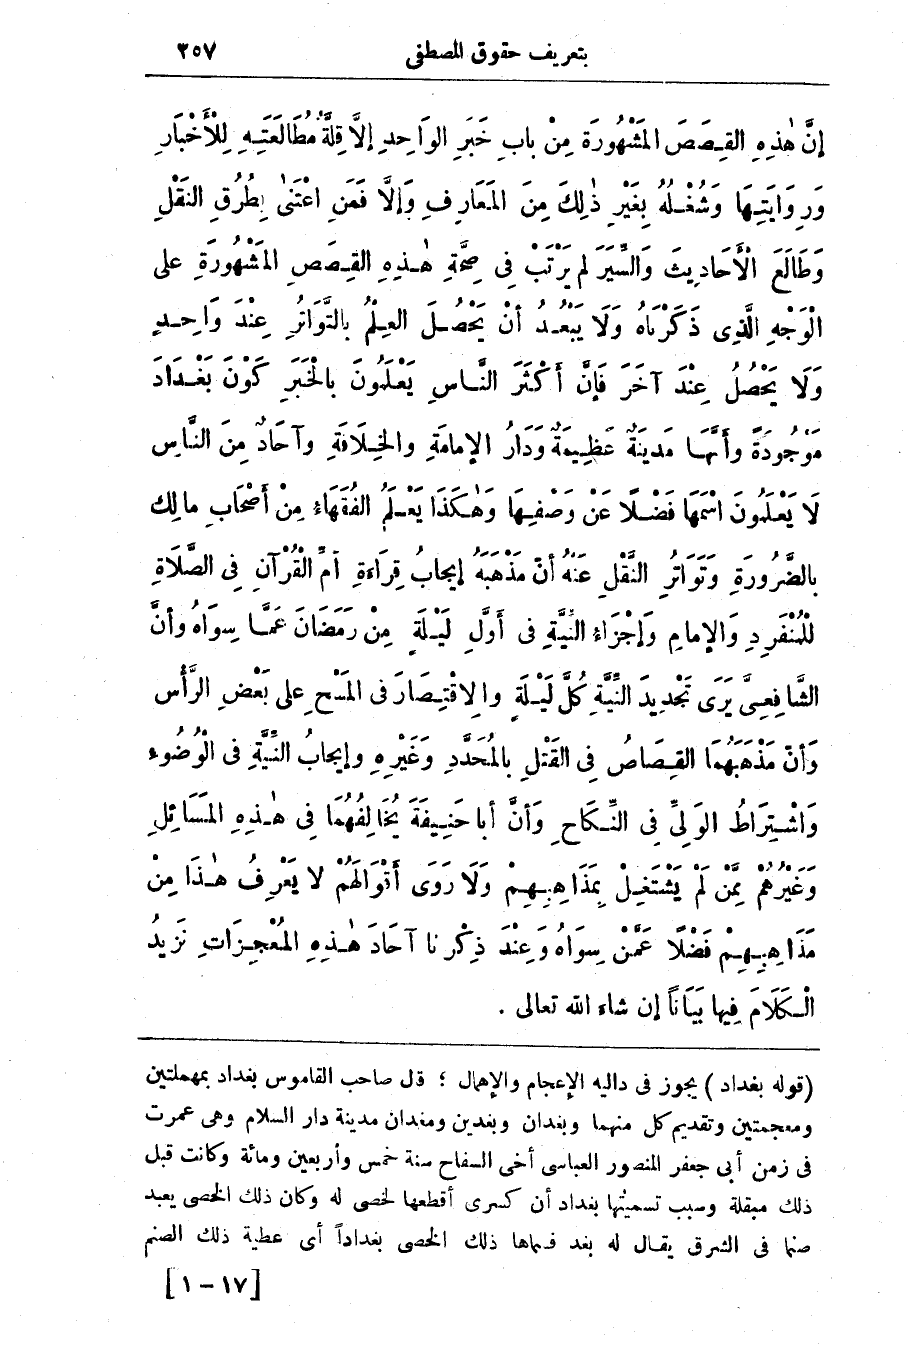 بتعريف حقوق المصطفى ٢٥٧
إنَّ هٰذِهِ القِصَصَ المَشْهُورَةَ مِنْ بابِ خَبَرِ الوَاحِدِ إلاَّ قِلَّةُ مُطَالَعَتِهِ لِلْأَخْبَارِ
وَرِوَايَتِهَا وَشُغْلُهُ بِغَيْرِ ذٰلِكَ مِنَ المَعَارِفِ وَإلاَّ فَمَنِ اعْتَنٰى بِطُرُقِ النَّقْلِ
وَطَالَعَ الْأَحَادِيثَ وَالسِّيَرَ لم يَرْتَبْ فى صِحَّةِ هٰذِهِ القِصَصِ المَشْهُورَةِ على
الْوَجْهِ الَّذِى ذَكَرْنَاهُ وَلَا يَبْعُدُ أنْ يَحْصُلَ العِلْمُ بالتَّوَاتُرِ عِنْدَ وَاحِدٍ
وَلَا يَحْصُلُ عِنْدَ آخَرَ فَإنَّ أَكْثَرَ النَّاسِ يَعْلَمُونَ بالْخَبَرِ كَوْنَ بَغْدَادَ
مَوْجُودَةً وأَنَّهَا مَدينَةٌ عَظِيمَةٌ وَدَارُ الإمامَةِ والخِلَافَةِ وآحَادٌ مِنَ النَّاسِ
لَا يَعْلَمُونَ اسْمَهَا فَضْلًا عَنْ وَصْفِهَا وَهٰكَذَا يَعْلَمُ الفُقَهَاءُ مِنْ أَصْحَابِ مالك
بالضَّرُورَةِ وَتَوَاتُرِ النَّقْلِ عَنْهُ أنّ مَذْهَبَهُ إيجابُ قِرَاءَةِ أمِّ الْقُرْآنِ فى الصَّلَاةِ
لِلْمُنْفَرِدِ وَالإمامِ وَإجْزَاءُ النِّيَّةِ فى أَوَّلِ لَيْلَةٍ مِنْ رَمَضَانَ عَمَّا سِوَاهُ وأنَّ
الشَّافِعِىَّ يَرَى تَجْدِيدَ النِّيَّةِ كُلَّ لَيْلَةٍ والاقْتِصَارَ فى المَسْحِ على بَعْضِ الرَّأْسِ
وَأنّ مَذْهَبَهُمَا القِصَاصُ فى القَتْلِ بالمُحَدَّدِ وَغَيْرِهِ وإيجابُ النِّيَّةِ فى الْوُضُوءِ
وَاشْتِرَاطُ الوَلِىِّ فى النِّكَاحِ وَأنَّ أبا حَنِيفَةَ يُخَالِفُهُمَا فى هٰذِهِ المَسَائِلِ
وَغَيْرُهُمْ مِمَّنْ لَمْ يَشْتَغِلْ بِمَذَاهِبِهِمْ وَلَا رَوَى أَقْوَالَهُمْ لا يَعْرِفُ هٰذَا مِنْ
مَذَاهِبِهِمْ فَضْلًا عَمَّنْ سِوَاهُ وَعِنْدَ ذِكْرِنا آحَادَ هٰذِهِ المُعْجِزَاتِ نَزِيدُ
الْكَلَامَ فِيها بَيَاناً إن شاء الله تعالى .
(قوله بغداد) يجوز فى داليه الإعجام والإهمال ؛ قل صاحب القاموس بغداد بمهملتين
ومعجمتين وتقديم كل منهما وبغدان وبغدين ومغدان مدينة دار السلام وهى عمرت
فى زمن أبى جعفر المنصور العباسى أخى السفاح سنة خمس وأربعين ومائة وكانت قبل
ذلك مبقلة وسبب تسميتها بغداد أن كسرى أقطعها لخصى له وكان ذلك الخصى يعبد
صنما فى الشرق يقال له بغد فسماها ذلك الخصى بغداداً أى عطية ذلك الصنم
[١٧ – ١]